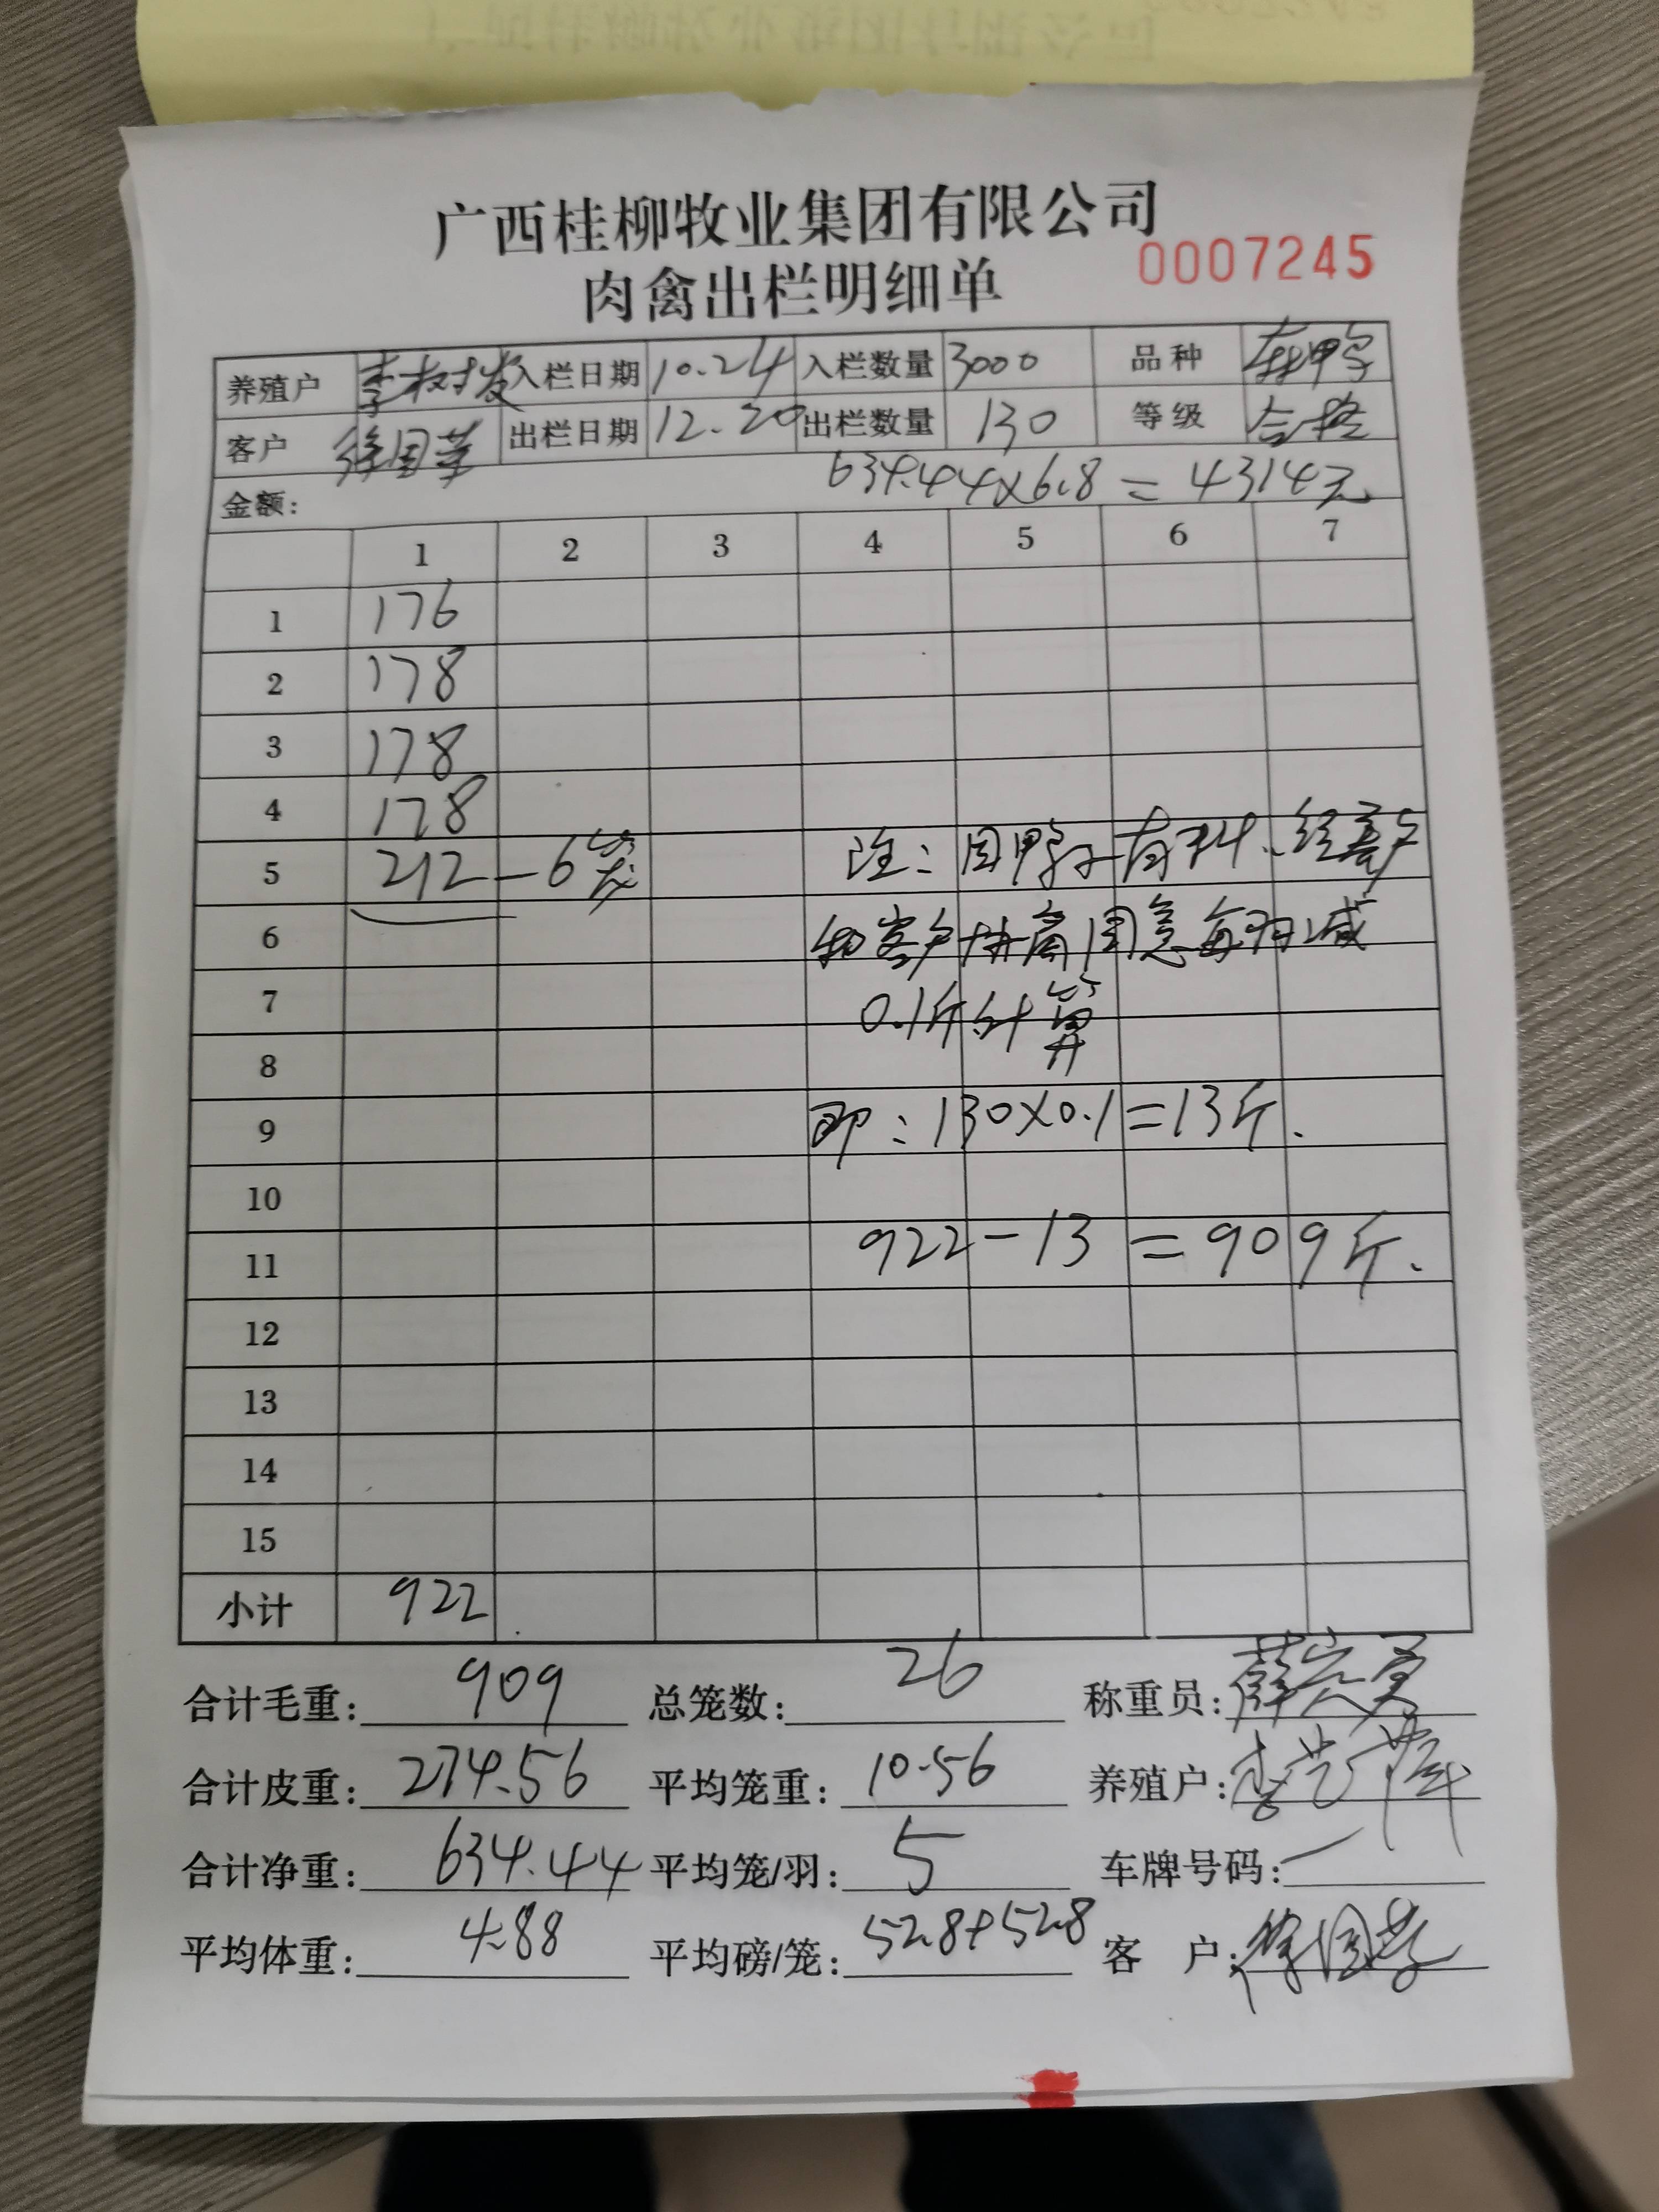 广西桂柳牧业集团有限公司
肉禽出栏明细单
0007245
养殖户 李树发 入栏日期 10.24 入栏数量 3000 品种
客户 徐国荣 出栏日期 12.20 出栏数量 130 等级 合格
金额: 634.44×6.8=4314元
1 2 3 4 5 6 7
1 176
2 178
3 178
4 178
5 212-6笼 注:因鸭子有料、经养户
6 和客户协商同意每羽减
7 0.1斤计算
8
9 即:130×0.1=13斤.
10
11 922-13=909斤.
12
13
14
15
小计 922
合计毛重: 909 总笼数: 26 称重员:
合计皮重: 274.56 平均笼重: 10.56 养殖户:
合计净重: 634.44 平均笼/羽: 5 车牌号码:
平均体重: 4.88 平均磅/笼: 52.8+52.8 客户: 徐国荣